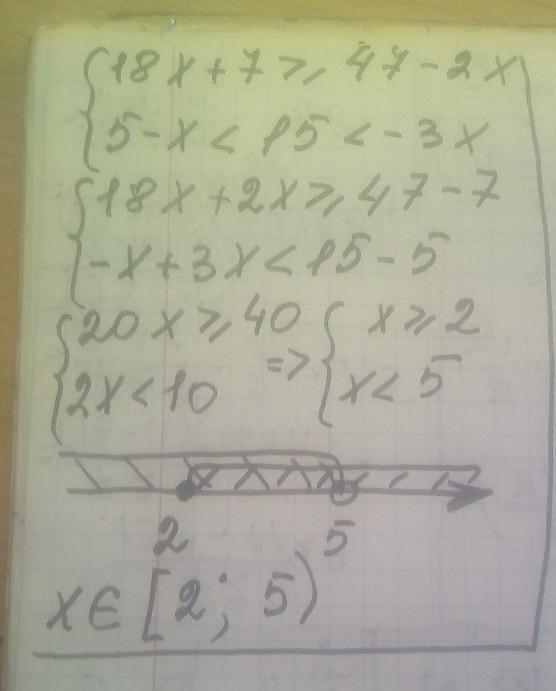 { 18x + 7 ≥ 47 - 2x
5 - x < 15 < - 3x
{ 18x + 2x ≥ 47 - 7
-x + 3x < 15 - 5
{ 20x ≥ 40 => { x ≥ 2
2x < 10 x < 5
2 5
x ∈ [2; 5)